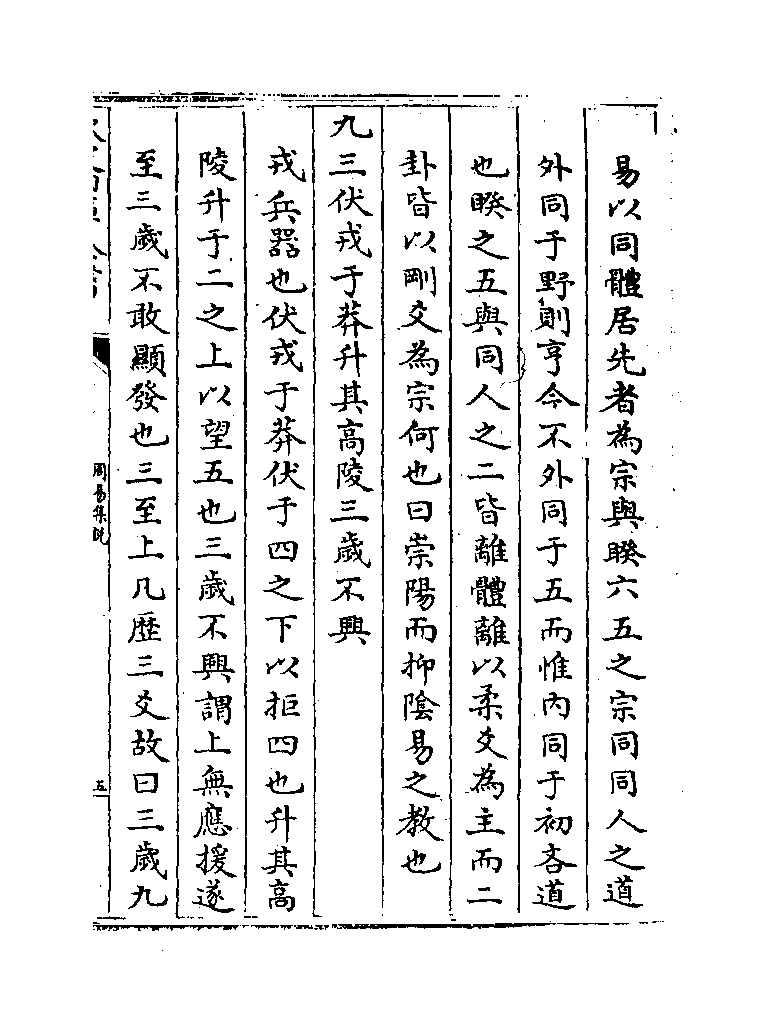 易以同體居先者為宗與睽六五之宗同同人之道
外同于野則亨今不外同于五而惟内同于初吝道
也睽之五與同人之二皆離體離以柔爻為主而二
卦皆以剛爻為宗何也曰崇陽而抑陰易之教也
九三伏戎于莽升其高陵三歲不興
戎兵器也伏戎于莽伏于四之下以拒四也升其高
陵升于二之上以望五也三歲不興謂上無應援遂
至三歲不敢顯發也三至上凡歴三爻故曰三歲九
周易集說
五